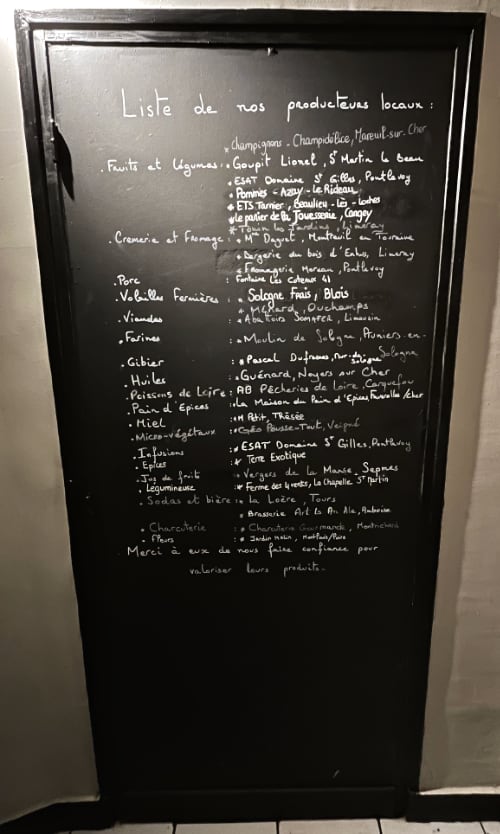 Liste de nos producteurs locaux :
* Champignons - Champidélice, Mareuil-sur-Cher
. Fruits et légumes : * Goupit Lionel, St Martin le beau
* ESAT Domaine St Gilles, Pontlevoy
* Pommes - Azay-le-Rideau
* ETS Tarnier, Beaulieu-lès-Loches
* Le panier de la Jouesserie, Cangey
* les Jardins, Limeray
. Crèmerie et Fromage : * Mme Daguet, Montreuil en Touraine
* Bergerie du bois d'Enhus, Limeray
* Fromagerie Moreau, Pontlevoy
. Porc : Fontaine Les Coteaux 41
. Volailles Fermières : * Sologne Frais, Blois
* Ménard, Duchamps
. Viandes : * Abattoirs SOMAFER, Limousin
. Farines : * Moulin de Sologne, Pruniers-en-Sologne
. Gibier : * Pascal Dufresne, Mur-de-Sologne
. Huiles : * Guénard, Noyers sur Cher
. Poissons de Loire : AB Pêcheries de Loire, Carquefou
. Pain d'Épices : * La Maison du Pain d'Epices, Faverolles/cher
. Miel : * M Petit, Thésée
. Micro-végétaux : * Géo Pousse-Tout, Veigné
. Infusions : * ESAT Domaine St Gilles, Pontlevoy
. Epices : * Terre Exotique
. Jus de fruit : Vergers de la Manse, Sepmes
. Légumineuse : * Ferme des 4 vents, La Chapelle St Martin
. Sodas et bière : * la Loère, Tours
* Brasserie Art Is An Ale, Amboise
. Charcuterie : * Charcuterie Gourmande, Montrichard
. Fleurs : * Jardin Malin,
Merci à eux de nous faire confiance pour
valoriser leurs produits.